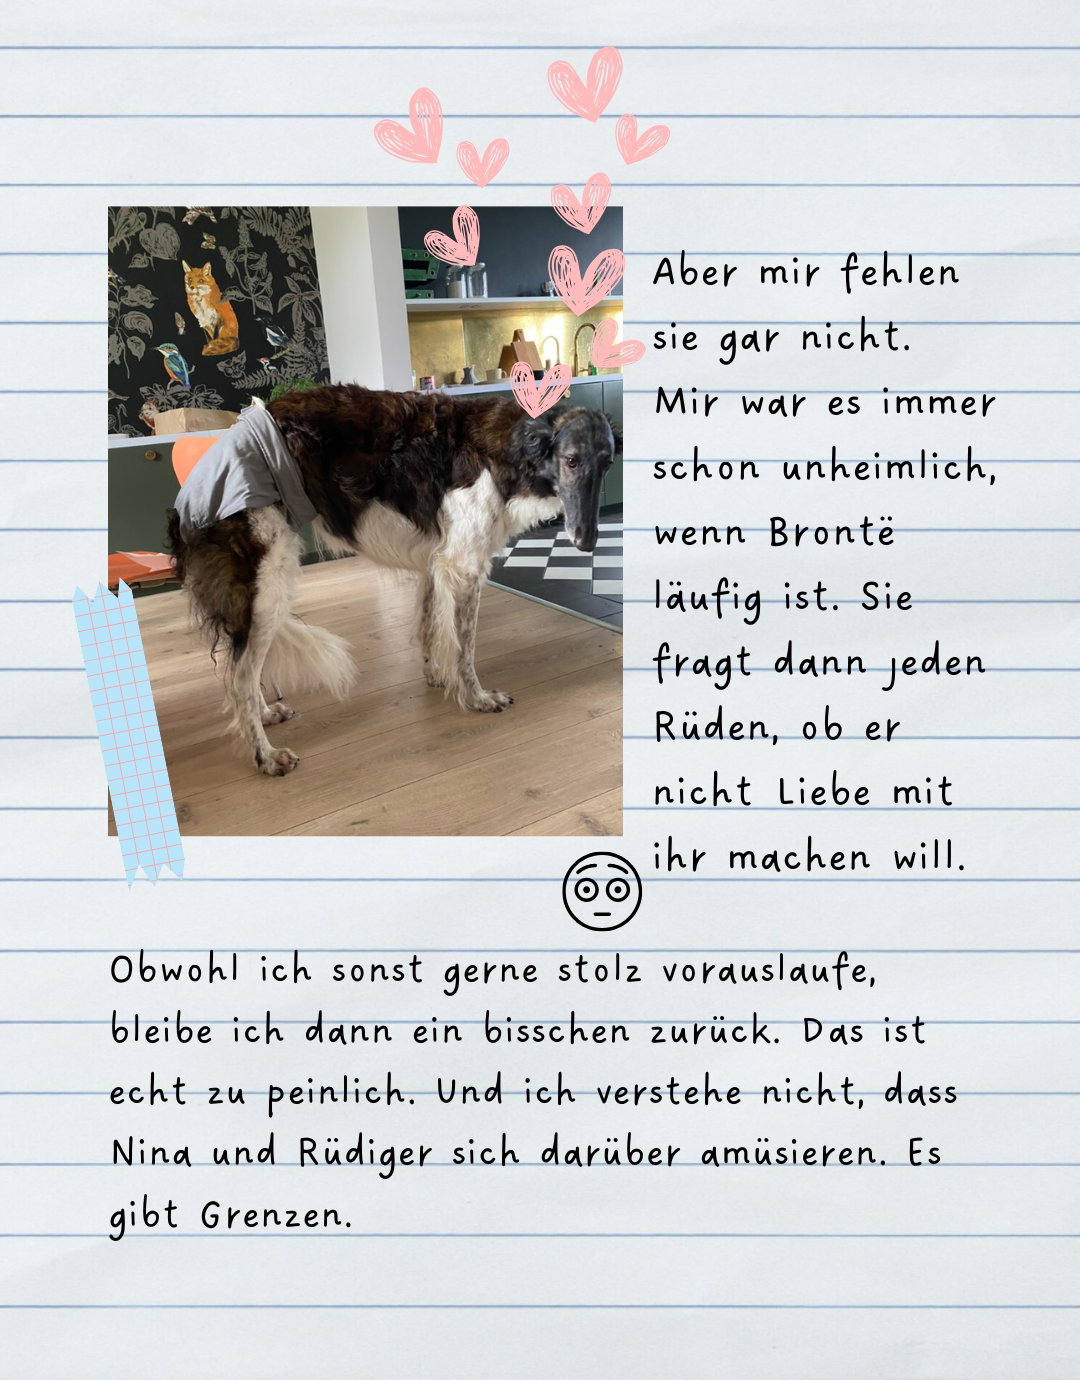 Aber mir fehlen
sie gar nicht.
Mir war es immer
schon unheimlich,
wenn Brontë
läufig ist. Sie
fragt dann jeden
Rüden, ob er
nicht Liebe mit
ihr machen will.
Obwohl ich sonst gerne stolz vorauslaufe,
bleibe ich dann ein bisschen zurück. Das ist
echt zu peinlich. Und ich verstehe nicht, dass
Nina und Rüdiger sich darüber amüsieren. Es
gibt Grenzen.